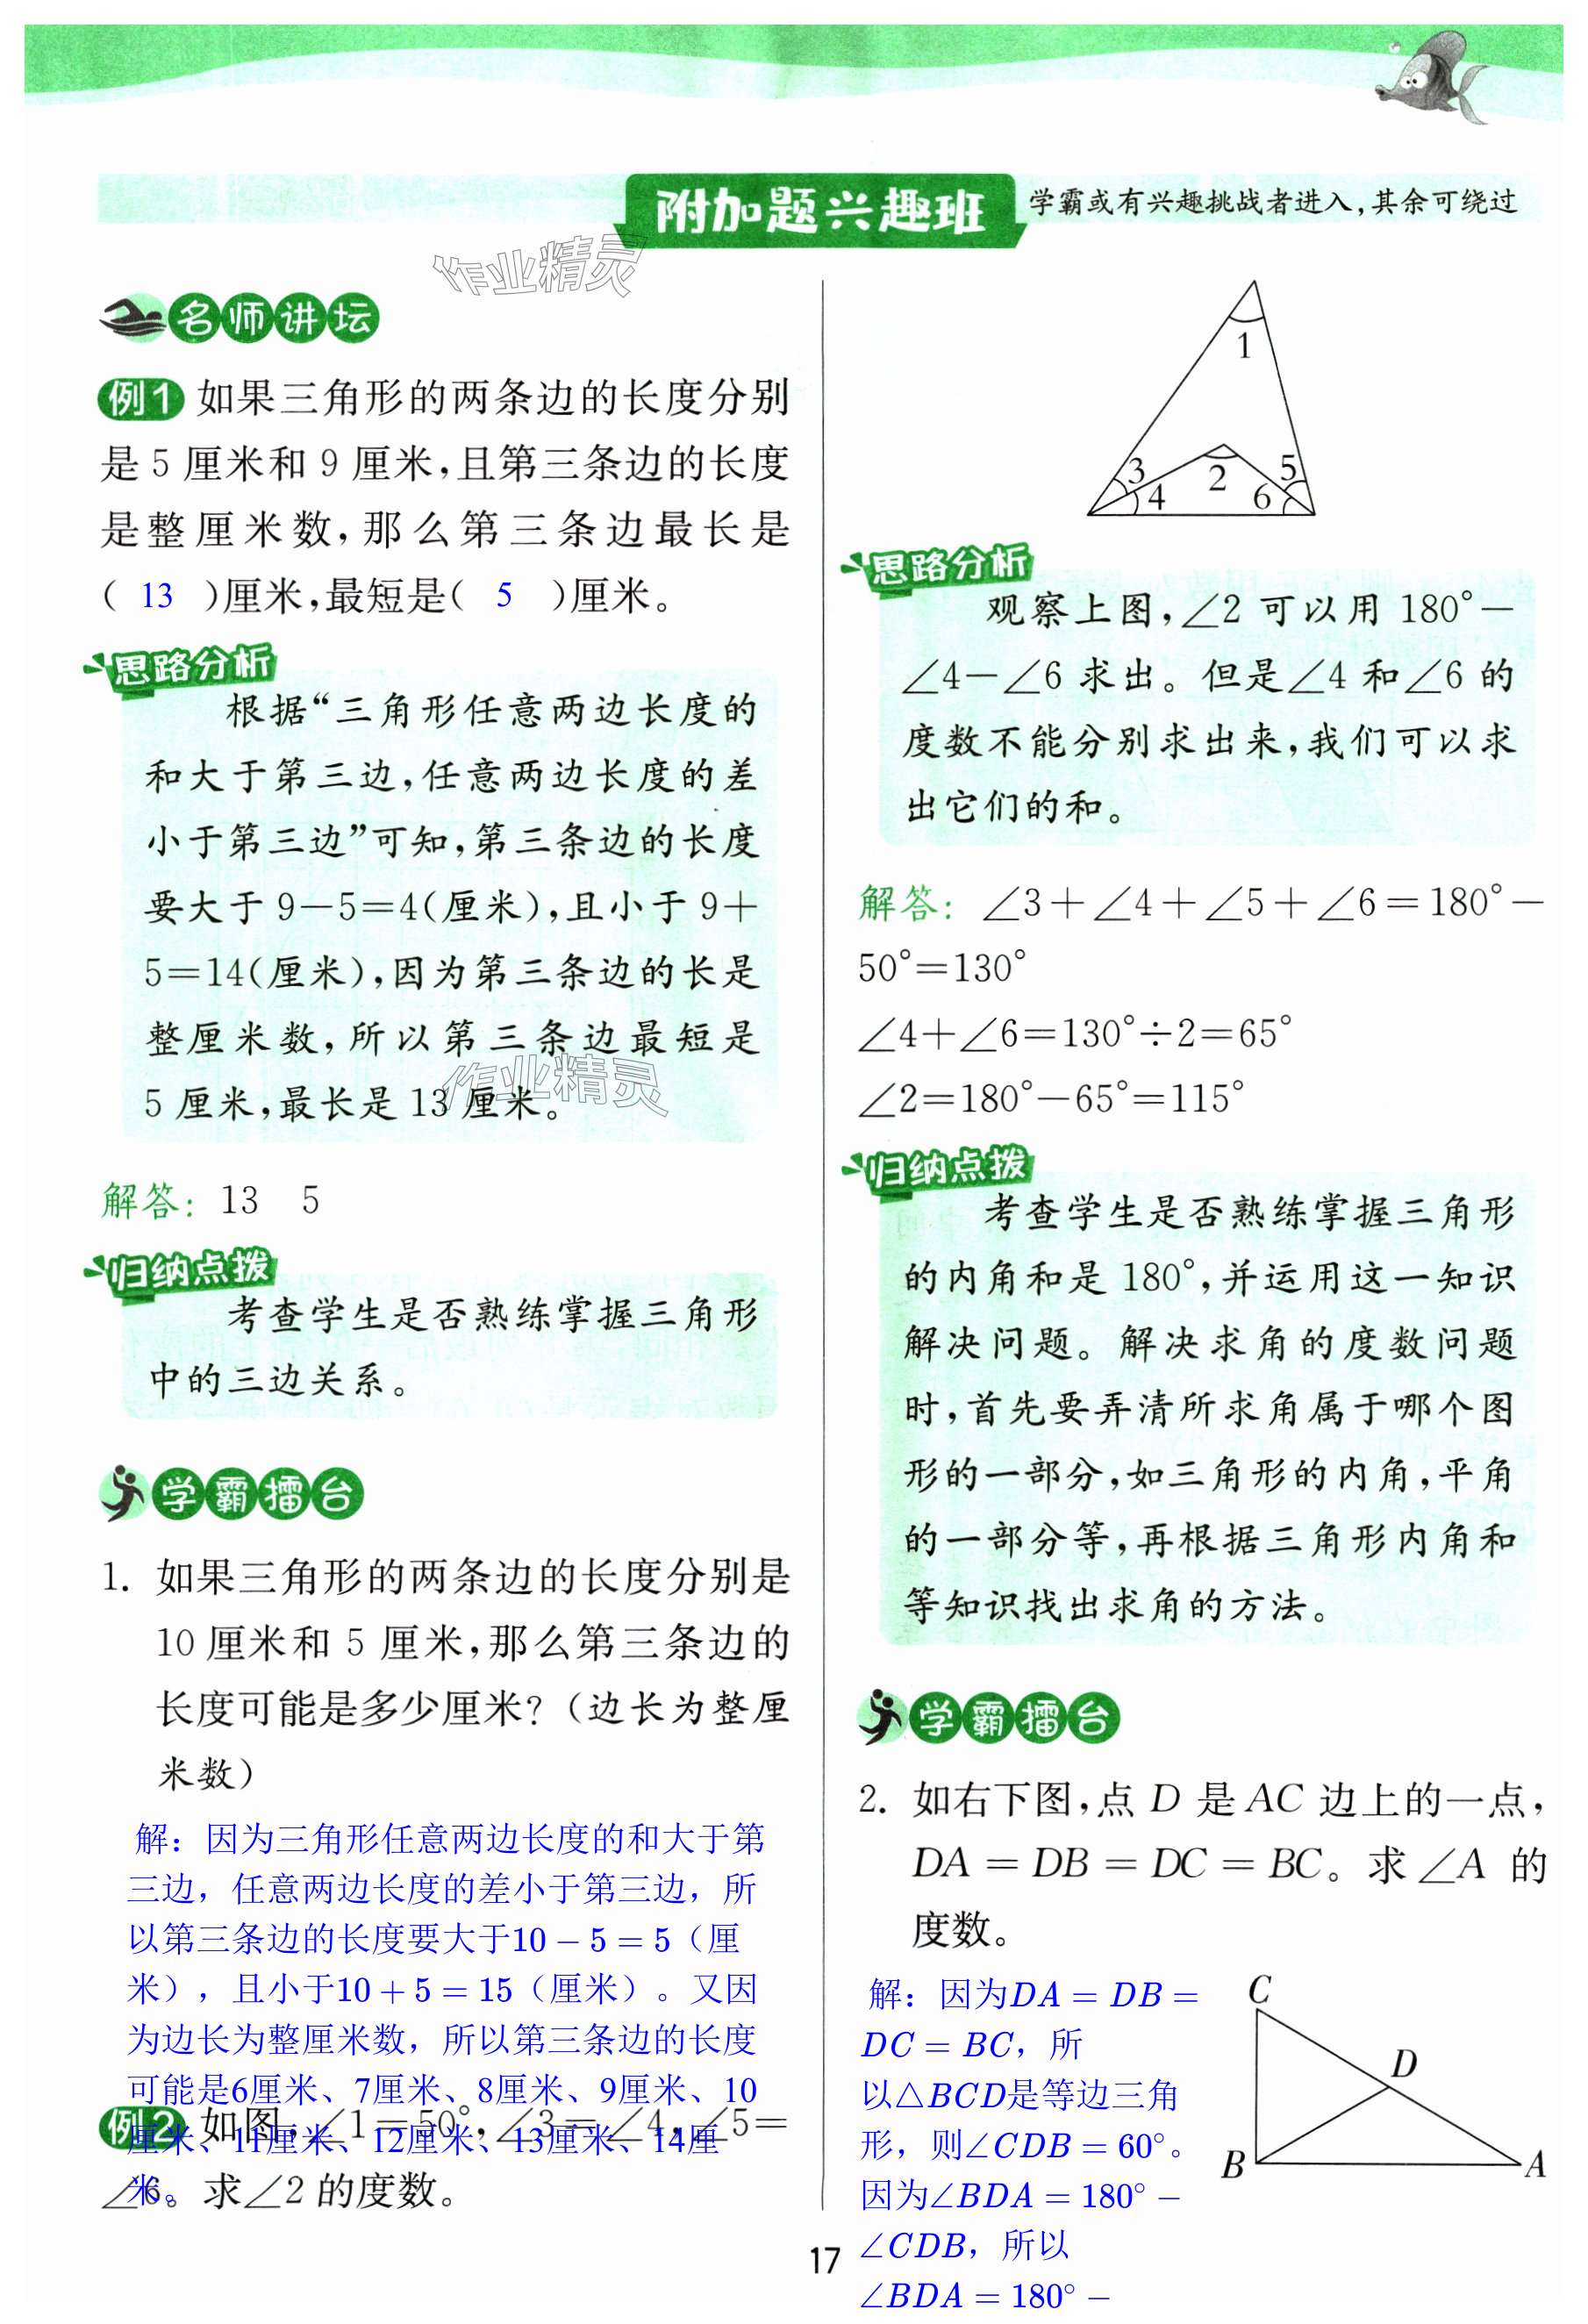 附加题兴趣班 学霸或有兴趣挑战者进入,其余可绕过
作业精灵
名师讲坛
例1 如果三角形的两条边的长度分别
是 5 厘米和 9 厘米,且第三条边的长度
是整厘米数,那么第三条边最长是
( 13 )厘米,最短是( 5 )厘米。
思路分析
根据“三角形任意两边长度的
和大于第三边,任意两边长度的差
小于第三边”可知,第三条边的长度
要大于 9-5=4(厘米),且小于 9+
5=14(厘米),因为第三条边的长是
整厘米数,所以第三条边最短是
5 厘米,最长是 13 厘米。
作业精灵
解答: 13 5
归纳点拨
考查学生是否熟练掌握三角形
中的三边关系。
学霸擂台
1. 如果三角形的两条边的长度分别是
10 厘米和 5 厘米,那么第三条边的
长度可能是多少厘米?(边长为整厘
米数)
解：因为三角形任意两边长度的和大于第
三边，任意两边长度的差小于第三边，所
以第三条边的长度要大于10-5=5（厘
米），且小于10+5=15（厘米）。又因
为边长为整厘米数，所以第三条边的长度
可能是6厘米、7厘米、8厘米、9厘米、10
厘米、11厘米、12厘米、13厘米、14厘
米。
例2 如图,∠1=50°,∠3=∠4,∠5=
∠6。求∠2 的度数。
1
3
4
2
5
6
思路分析
观察上图,∠2 可以用 180°-
∠4-∠6 求出。但是∠4 和∠6 的
度数不能分别求出来,我们可以求
出它们的和。
解答: ∠3+∠4+∠5+∠6=180°-
50°=130°
∠4+∠6=130°÷2=65°
∠2=180°-65°=115°
归纳点拨
考查学生是否熟练掌握三角形
的内角和是 180°,并运用这一知识
解决问题。解决求角的度数问题
时,首先要弄清所求角属于哪个图
形的一部分,如三角形的内角,平角
的一部分等,再根据三角形内角和
等知识找出求角的方法。
学霸擂台
2. 如右下图,点 D 是 AC 边上的一点,
DA=DB=DC=BC。求∠A 的
度数。
解：因为DA=DB=
DC=BC，所
以△BCD是等边三角
形，则∠CDB=60°。
因为∠BDA=180°-
∠CDB，所以
∠BDA=180°-
C
D
B
A
17